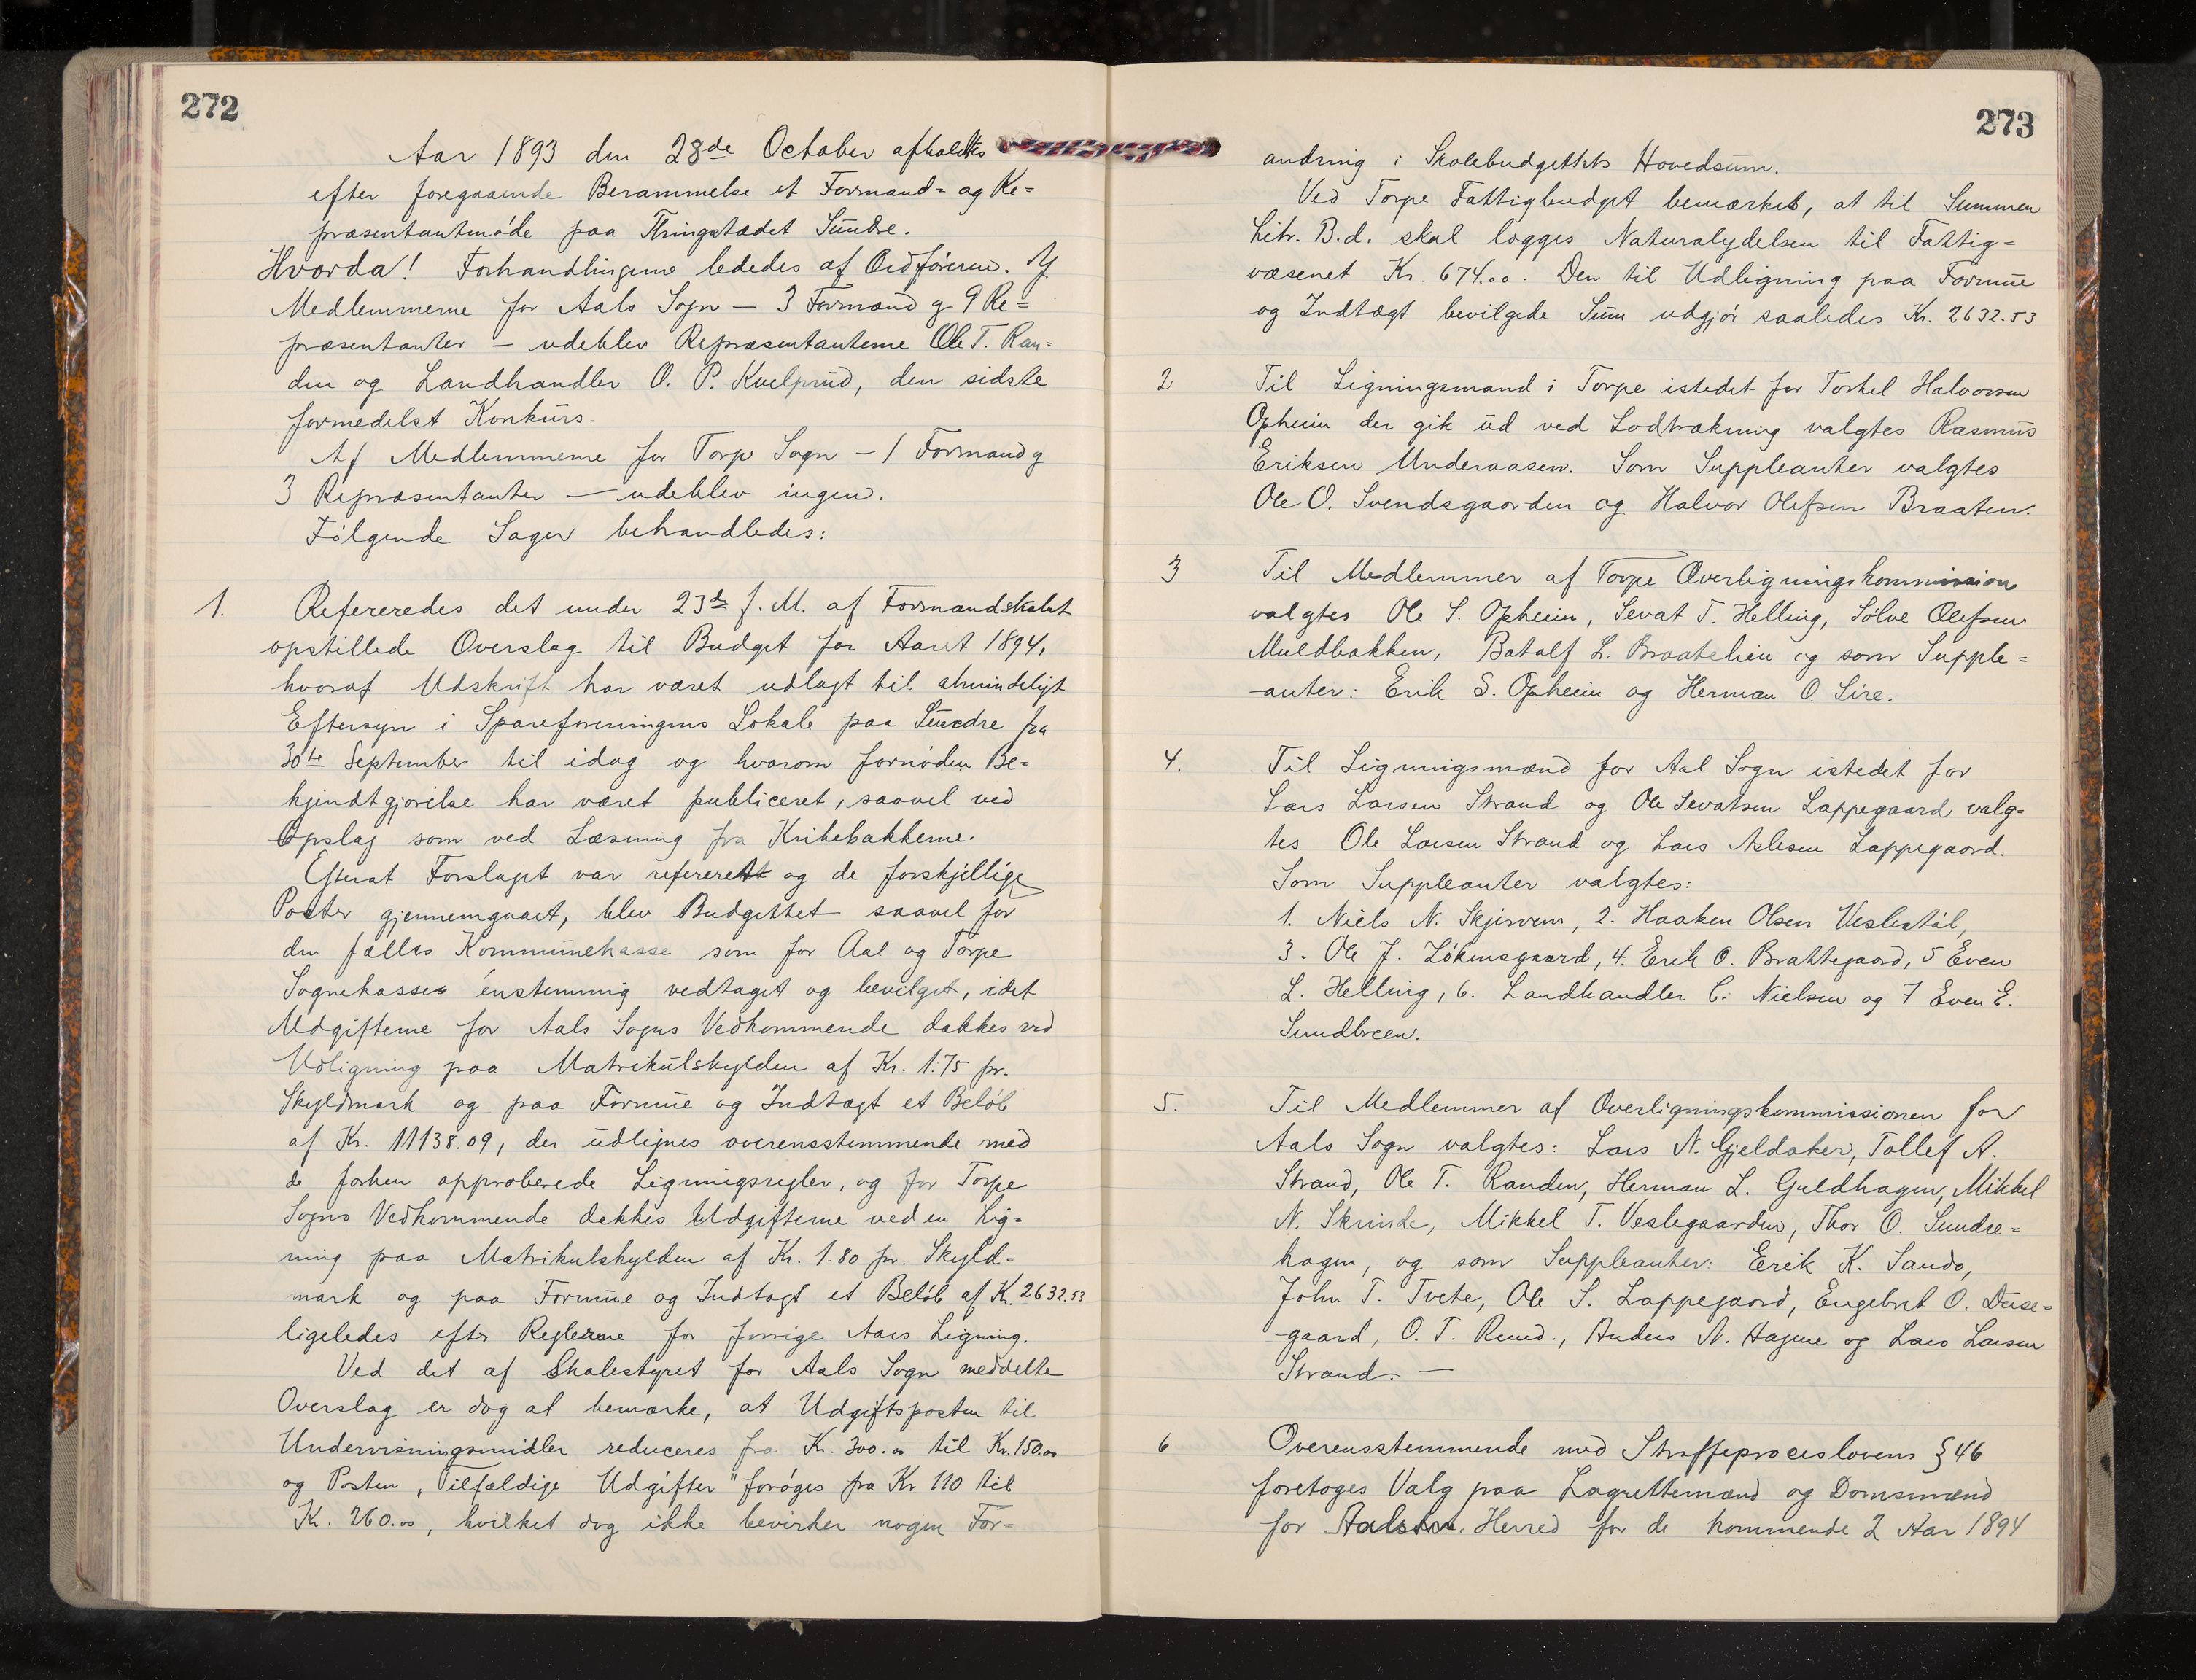 272
Aar 1893 den 28de October afholdtes
efter foregaaende Berammelse et Formand= og Re=
præsentantmøde paa Thingstædet Sundre.
Hvorda! Forhandlingerne lededes af Ordføreren. Af
Medlemmerne for Aals Sogn — 3 Formænd g 9 Re=
præsentanter — udeblev Repræsentanterne Ole T. Ran=
den og Landhandler O. P. Kvelprud, den sidste
formedelst Konkurs.
Af Medlemmerne for Torpe Sogn — 1 Formand g
3 Repræsentanter — udeblev ingen.
Følgende Sager behandledes:
1. Refereredes det under 23de f. M. af Formandskabet
opstillede Overslag til Budget for Aaret 1894,
hvoraf Udskrift har været udlagt til almindeligt
Eftersyn i Spareforeningens Lokale paa Sundre fra
30te September til idag og hvorom fornøden Be=
kjendtgjørelse har været publiceret, saavel ved
Opslag som ved Læsning fra Kirkebakkerne.
Efterat Forslaget var refereret og de forskjellige
Poster gjennemgaaet, blev Budgettet saavel for
den fælles Kommunekasse som for Aal og Torpe
Sognekasser énstemmig vedtaget og bevilget, idet
Udgifterne for Aals Sogns Vedkommende dækkes ved
Udligning paa Matrikulskylden af Kr. 1.75 pr.
Skyldmark og paa Formue og Indtægt et Beløb
af Kr. 11138.09, der udlignes overensstemmende med
de forhen approberede Ligningsregler, og for Torpe
Sogns Vedkommende dækkes Udgifterne ved en Lig=
ning paa Matrikulskylden af Kr. 1.80 pr. Skyld=
mark og paa Formue og Indtægt et Beløb af Kr. 2632.53
ligeledes efter Reglerne for forrige Aars Ligning.
Ved det af Skolestyret for Aals Sogn meddelte
Overslag er dog at bemærke, at Udgiftsposten til
Undervisningsmidler reduceres fra Kr. 300.00 til Kr. 150.00
og Posten „Tilfældige Udgifter" forøges fra Kr 110 til
Kr. 260.00, hvilket dog ikke bevirker nogen For=
273
andring i Skolebudgettets Hovedsum.
Ved Torpe Fattigbudget bemærkes, at til Summen
Litr. B.d. skal lægges Naturalydelsen til Fattig=
væsenet Kr. 674.00. Den til Udligning paa Formue
og Indtægt bevilgede Sum udgjør saaledes Kr. 2632.53
2 Til Ligningsmand i Torpe istedet for Torkel Halvorsen
Opheim der gik ud ved Lodtrækning valgtes Rasmus
Eriksen Underaasen. Som Suppleanter valgtes
Ole O. Svendsgaarden og Halvor Olefsen Braaten.
3 Til Medlemmer af Torpe Overligningskommission
valgtes Ole S. Opheim, Sevat T. Helling, Sølve Olefsen
Muldbakken, Batalf L. Braatelien og som Supple=
-anter: Erik S. Opheim og Herman O. Sire.
4. Til Ligningsmænd for Aal Sogn istedet for
Lars Larsen Strand og Ole Sevatsen Lappegaard valg=
tes Ole Larsen Strand og Lars Aslesen Lappegaard.
Som Suppleanter valgtes:
1. Niels N. Skjervem, 2. Haaken Olsen Veslestøl,
3. Ole J. Løkensgaard, 4. Erik O. Brattegaard, 5 Even
L. Helling, 6. Landhandler C. Nielsen og 7 Even E.
Sundbreen.
5. Til Medlemmer af Overligningskommissionen for
Aals Sogn valgtes: Lars N. Gjeldaker, Tollef A.
Strand, Ole T. Randen, Herman L. Guldhagen, Mikkel
N. Skrinde, Mikkel T. Veslegaarden, Thor O. Sundre=
hagen, og som Suppleanter: Erik K. Sando,
John T. Tvete, Ole S. Lappegaard, Engebret O. Duse=
-gaard, O. T. Rund., Anders N. Hagene og Lars Larsen
Strand. —
6 Overensstemmende med Straffeproceslovens § 46
foretoges Valg paa Lagrettemænd og Domsmænd
for Aals Herred for de kommende 2 Aar 1894